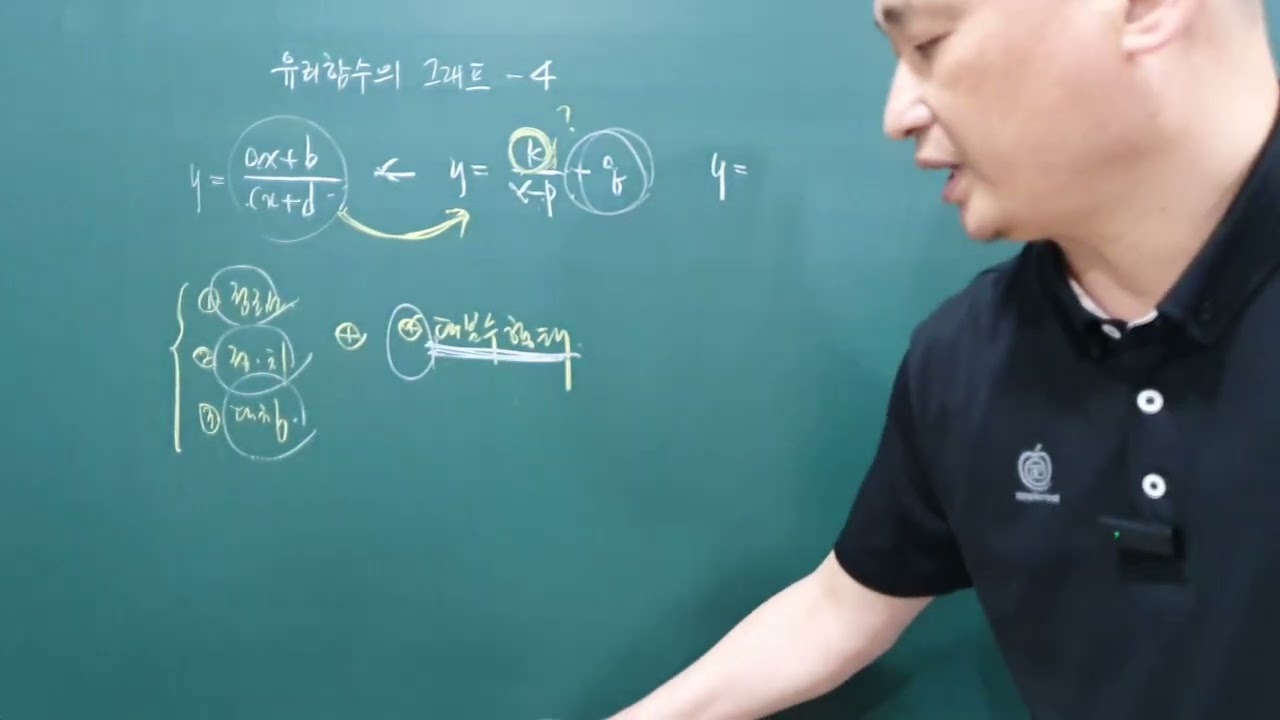 유리함수의 그래프 - 4
y = ax+b / cx+d ← y = k / x-p + q y =
?
① 점근선
②
③ 대칭
⊕ ④ 대분수 형태